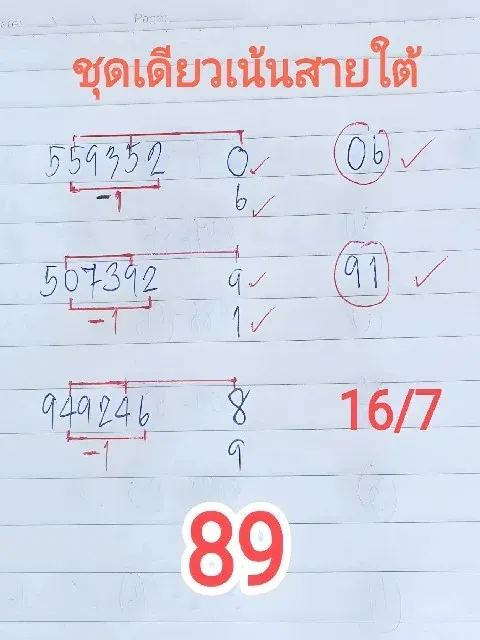 Page:
ชุดเดียวเน้นสายใต้
559352 0 06
-1 6
507392 9 91
-1 1
949246 8 16/7
-1 9
89